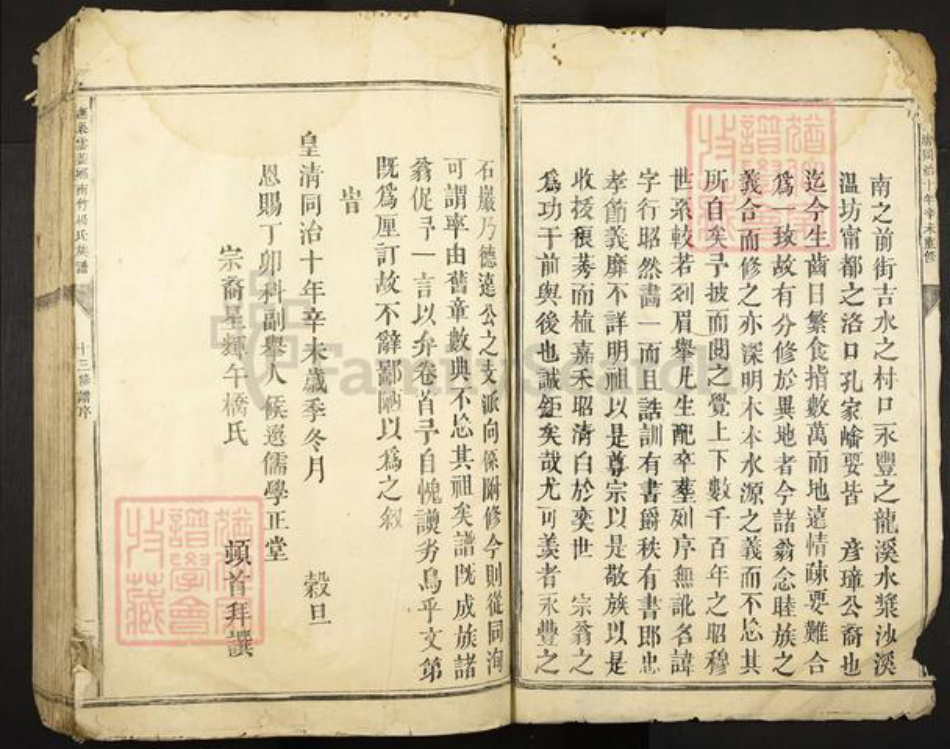 同治十年辛未重修
南之前街吉水之村口永豐之龍溪水漿沙溪
溫坊甯都之洛口孔家㟢要皆 彥璋公裔也
迄今生齒日繁食指數萬而地遠情疎要難合
爲一致故有分修於異地者今諸翁念睦族之
義合而修之亦深明木本水源之義而不忘其
所自矣予披而閱之覺上下數千百年之昭穆
世系較若列眉舉凡生配卒塟列序無訛名諱
字行昭然畫一而且誥訓有書爵秩有書即忠
孝節義靡不詳明祖以是尊宗以是敬族以是
收拔稂莠而植嘉禾昭清白於奕世 宗翁之
爲功于前與後也誠鉅矣哉尤可羡者永豐之
石巖乃德遠公之支派向係附修今則從同洵
可謂率由舊章數典不忘其祖矣譜既成族諸
翁促予一言以弁卷首予自愧譾劣烏乎文第
既爲厘訂故不辭鄙陋以爲之叙
旹
皇清同治十年辛未歲季冬月 穀旦
恩賜丁卯科副舉人候選儒學正堂
宗裔星輝午橋氏 頓首拜譔
南竹楊氏族譜 十三修譜序
FamilySearch
譜學會
收藏
譜學會
收藏